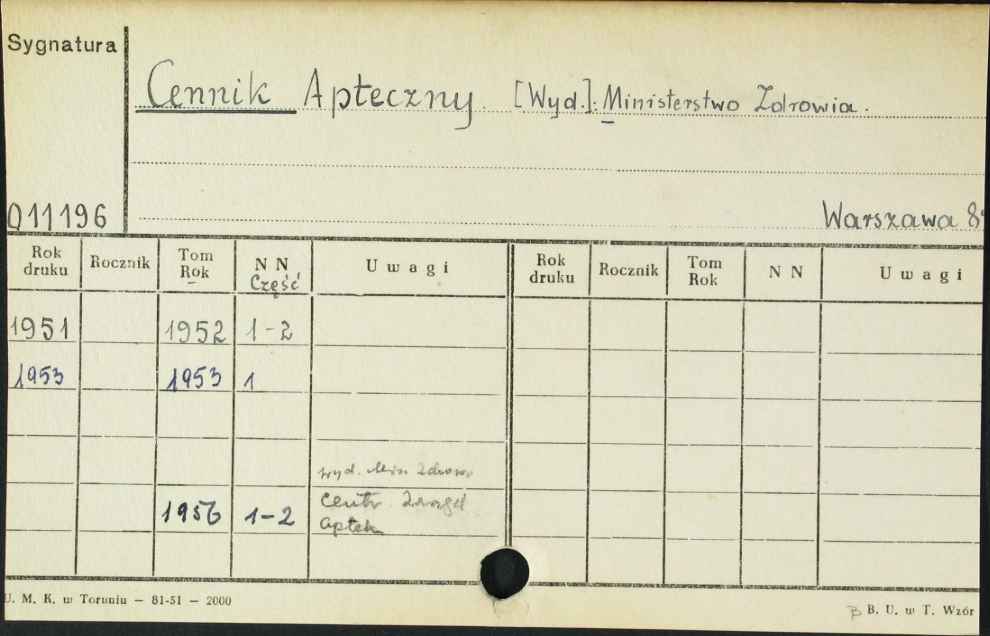 Sygnatura
Cennik Apteczny. [Wyd.]: Ministerstwo Zdrowia.
011196
Warszawa 8°
Rok druku Rocznik Tom Rok NN Część Uwagi Rok druku Rocznik Tom Rok NN Uwagi
1951 1952 1-2
1953 1953 1
wyd. Min Zdrowia
1956 1-2 Centr. Zarząd
Aptek
U. M. K. w Toruniu — 81-51 — 2000
B. U. w T. Wzór